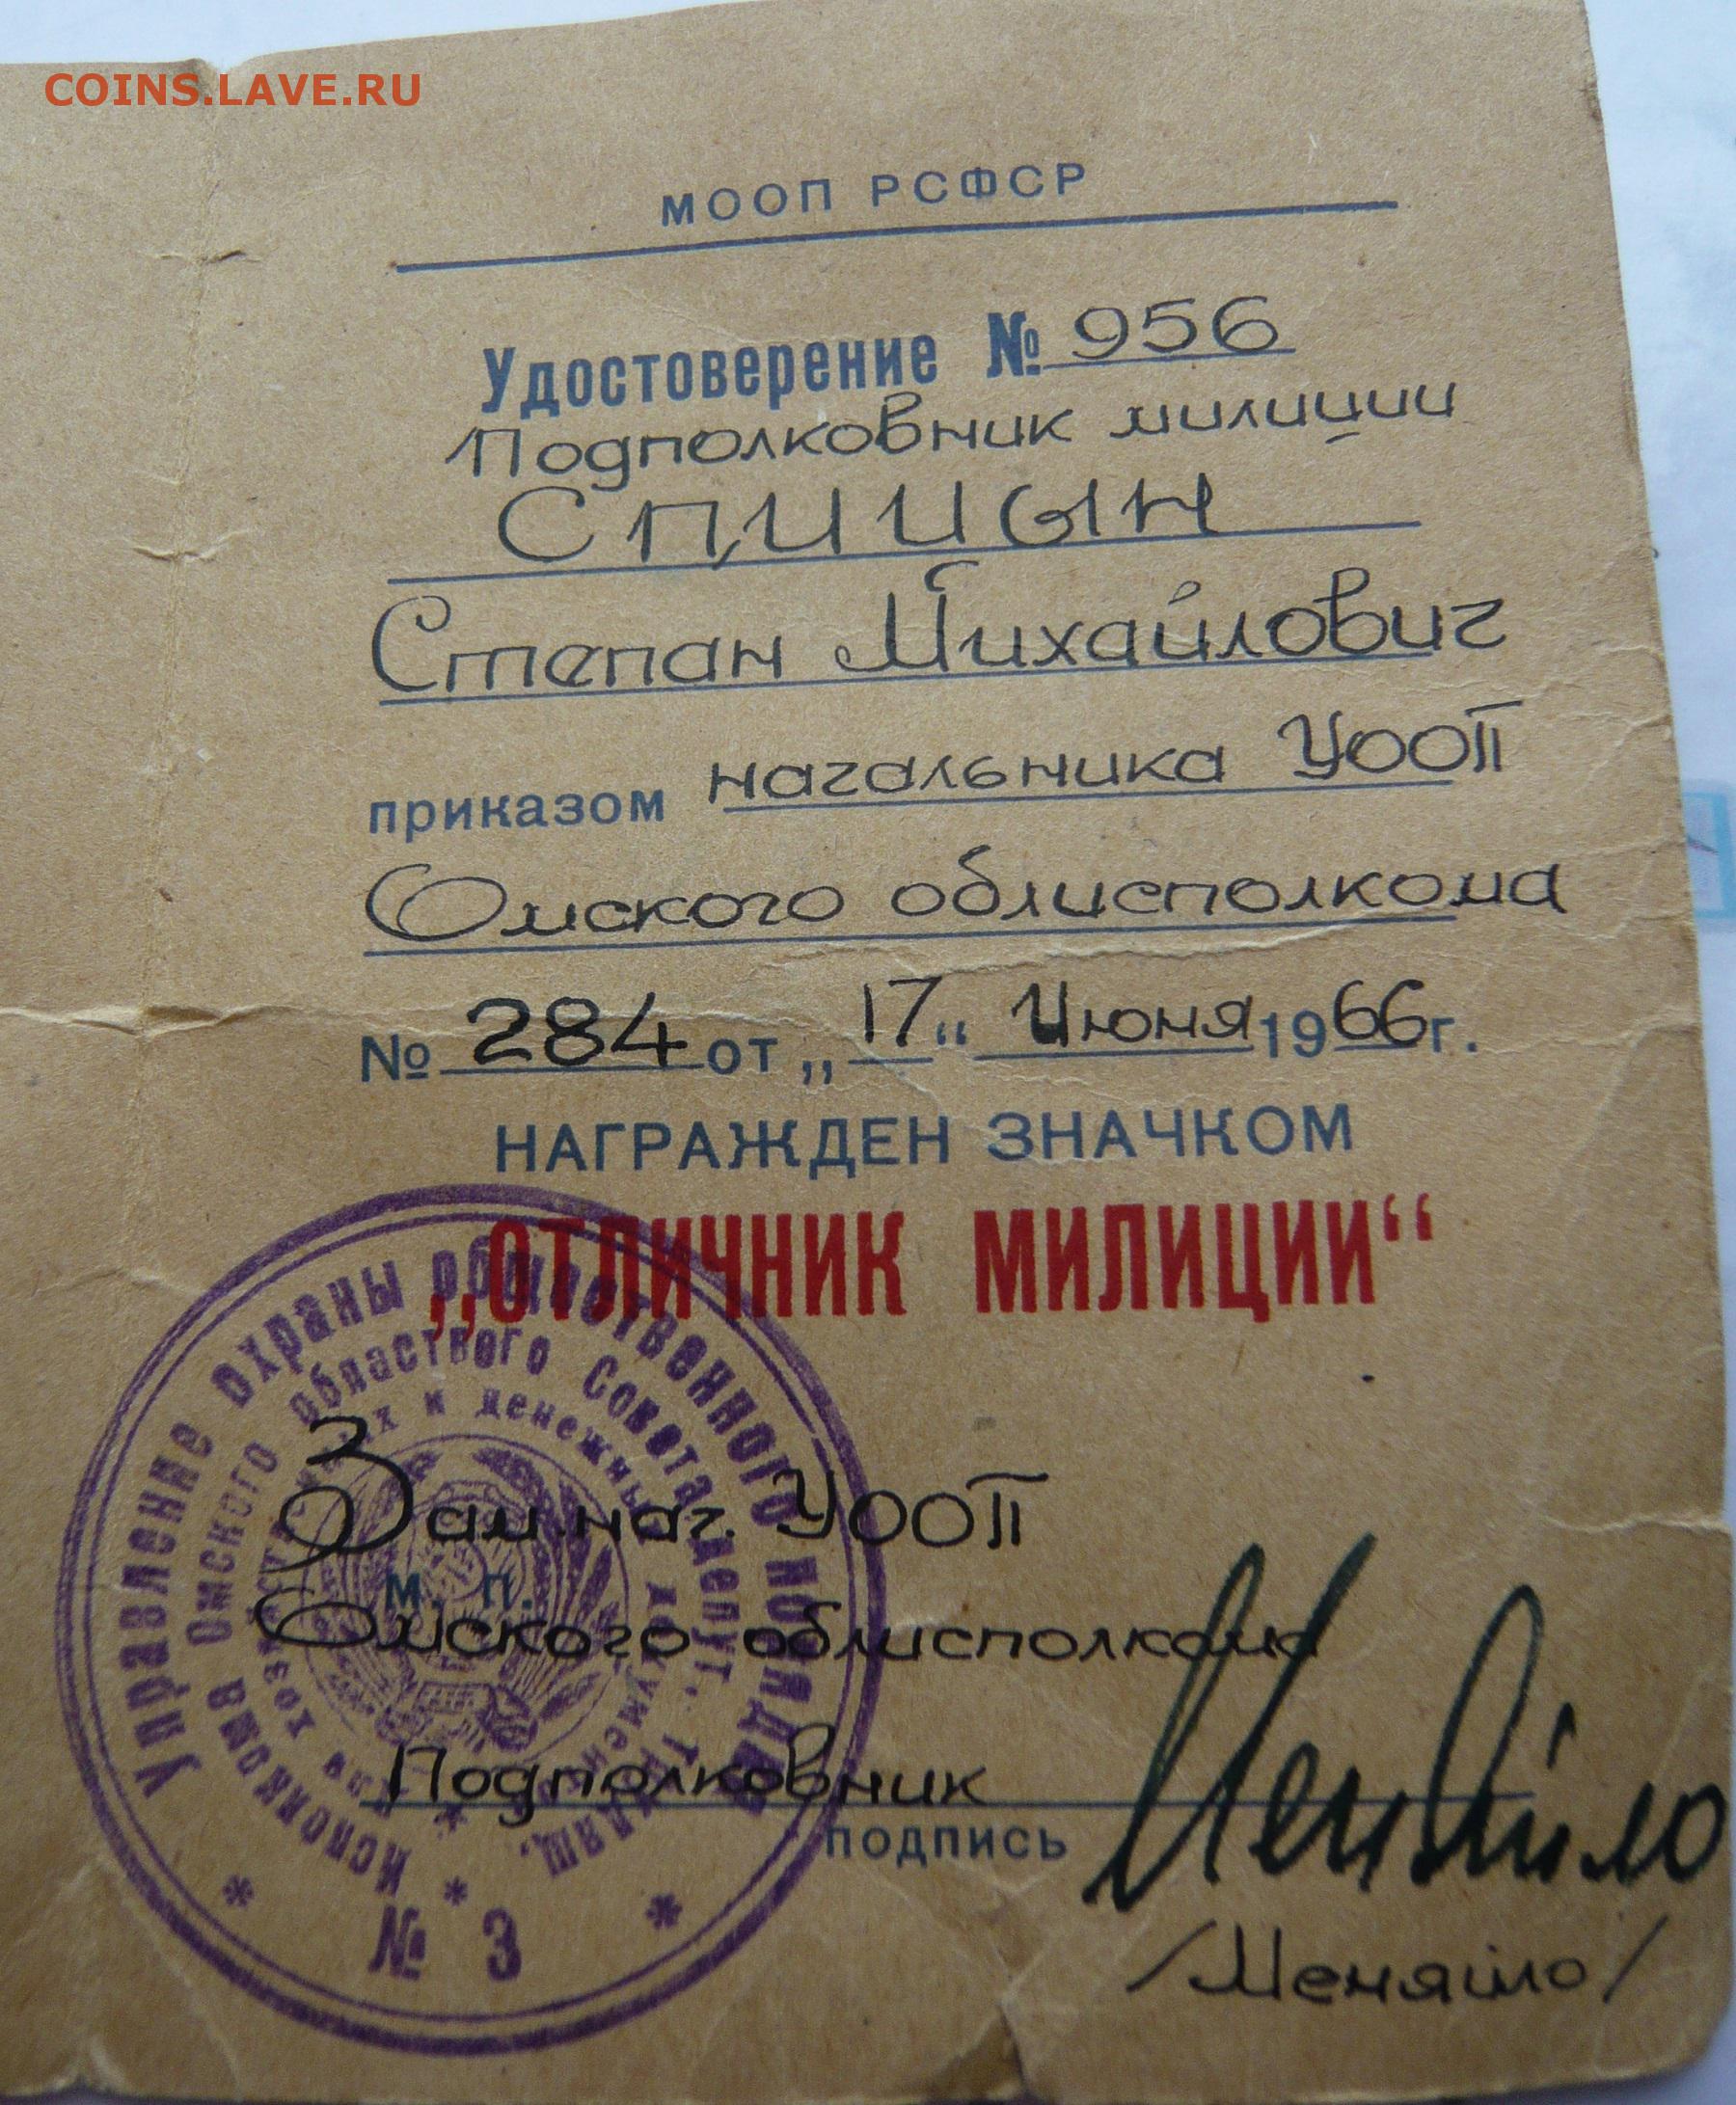 COINS.LAVE.RU
МООП РСФСР
Удостоверение № 956
Подполковник милиции
Спицын
Степан Михайлович
приказом начальника УООП
Омского облисполкома
№ 284 от „17“ Июня 1966г.
НАГРАЖДЕН ЗНАЧКОМ
„ОТЛИЧНИК МИЛИЦИИ“
Зам. нач. УООП
м. п.
Омского облисполкома
Подполковник
подпись
/Меняйло/
Управление охраны общественного порядка
Исполкома Омского областного Совета депут. трудящ.
и денежных документов
№ 3